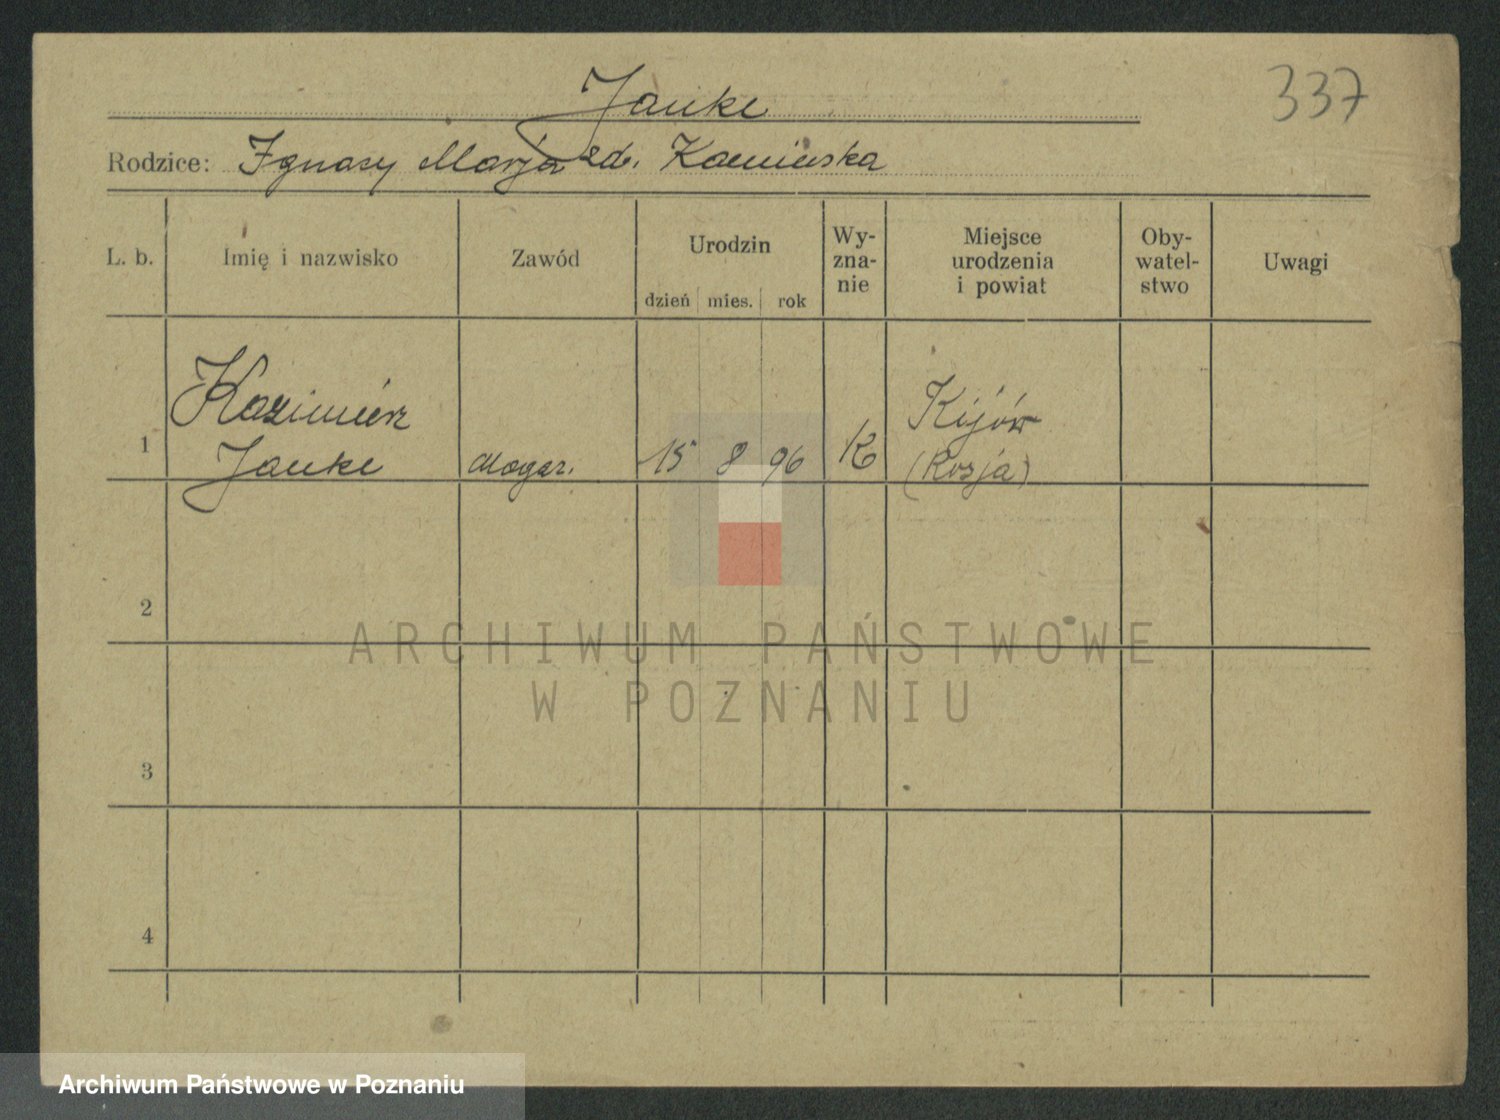 337
Janke
Rodzice: Ignacy Marja zd. Kamińska
L. b.
Imię i nazwisko
Zawód
Urodzin
dzień mies. rok
Wy-
zna-
nie
Miejsce
urodzenia
i powiat
Oby-
watel-
stwo
Uwagi
1
Kazimierz
Janke
15 8 96
K
Kijów
(Rosja)
2
3
4
ARCHIWUM PAŃSTWOWE
W POZNANIU
Archiwum Państwowe w Poznaniu